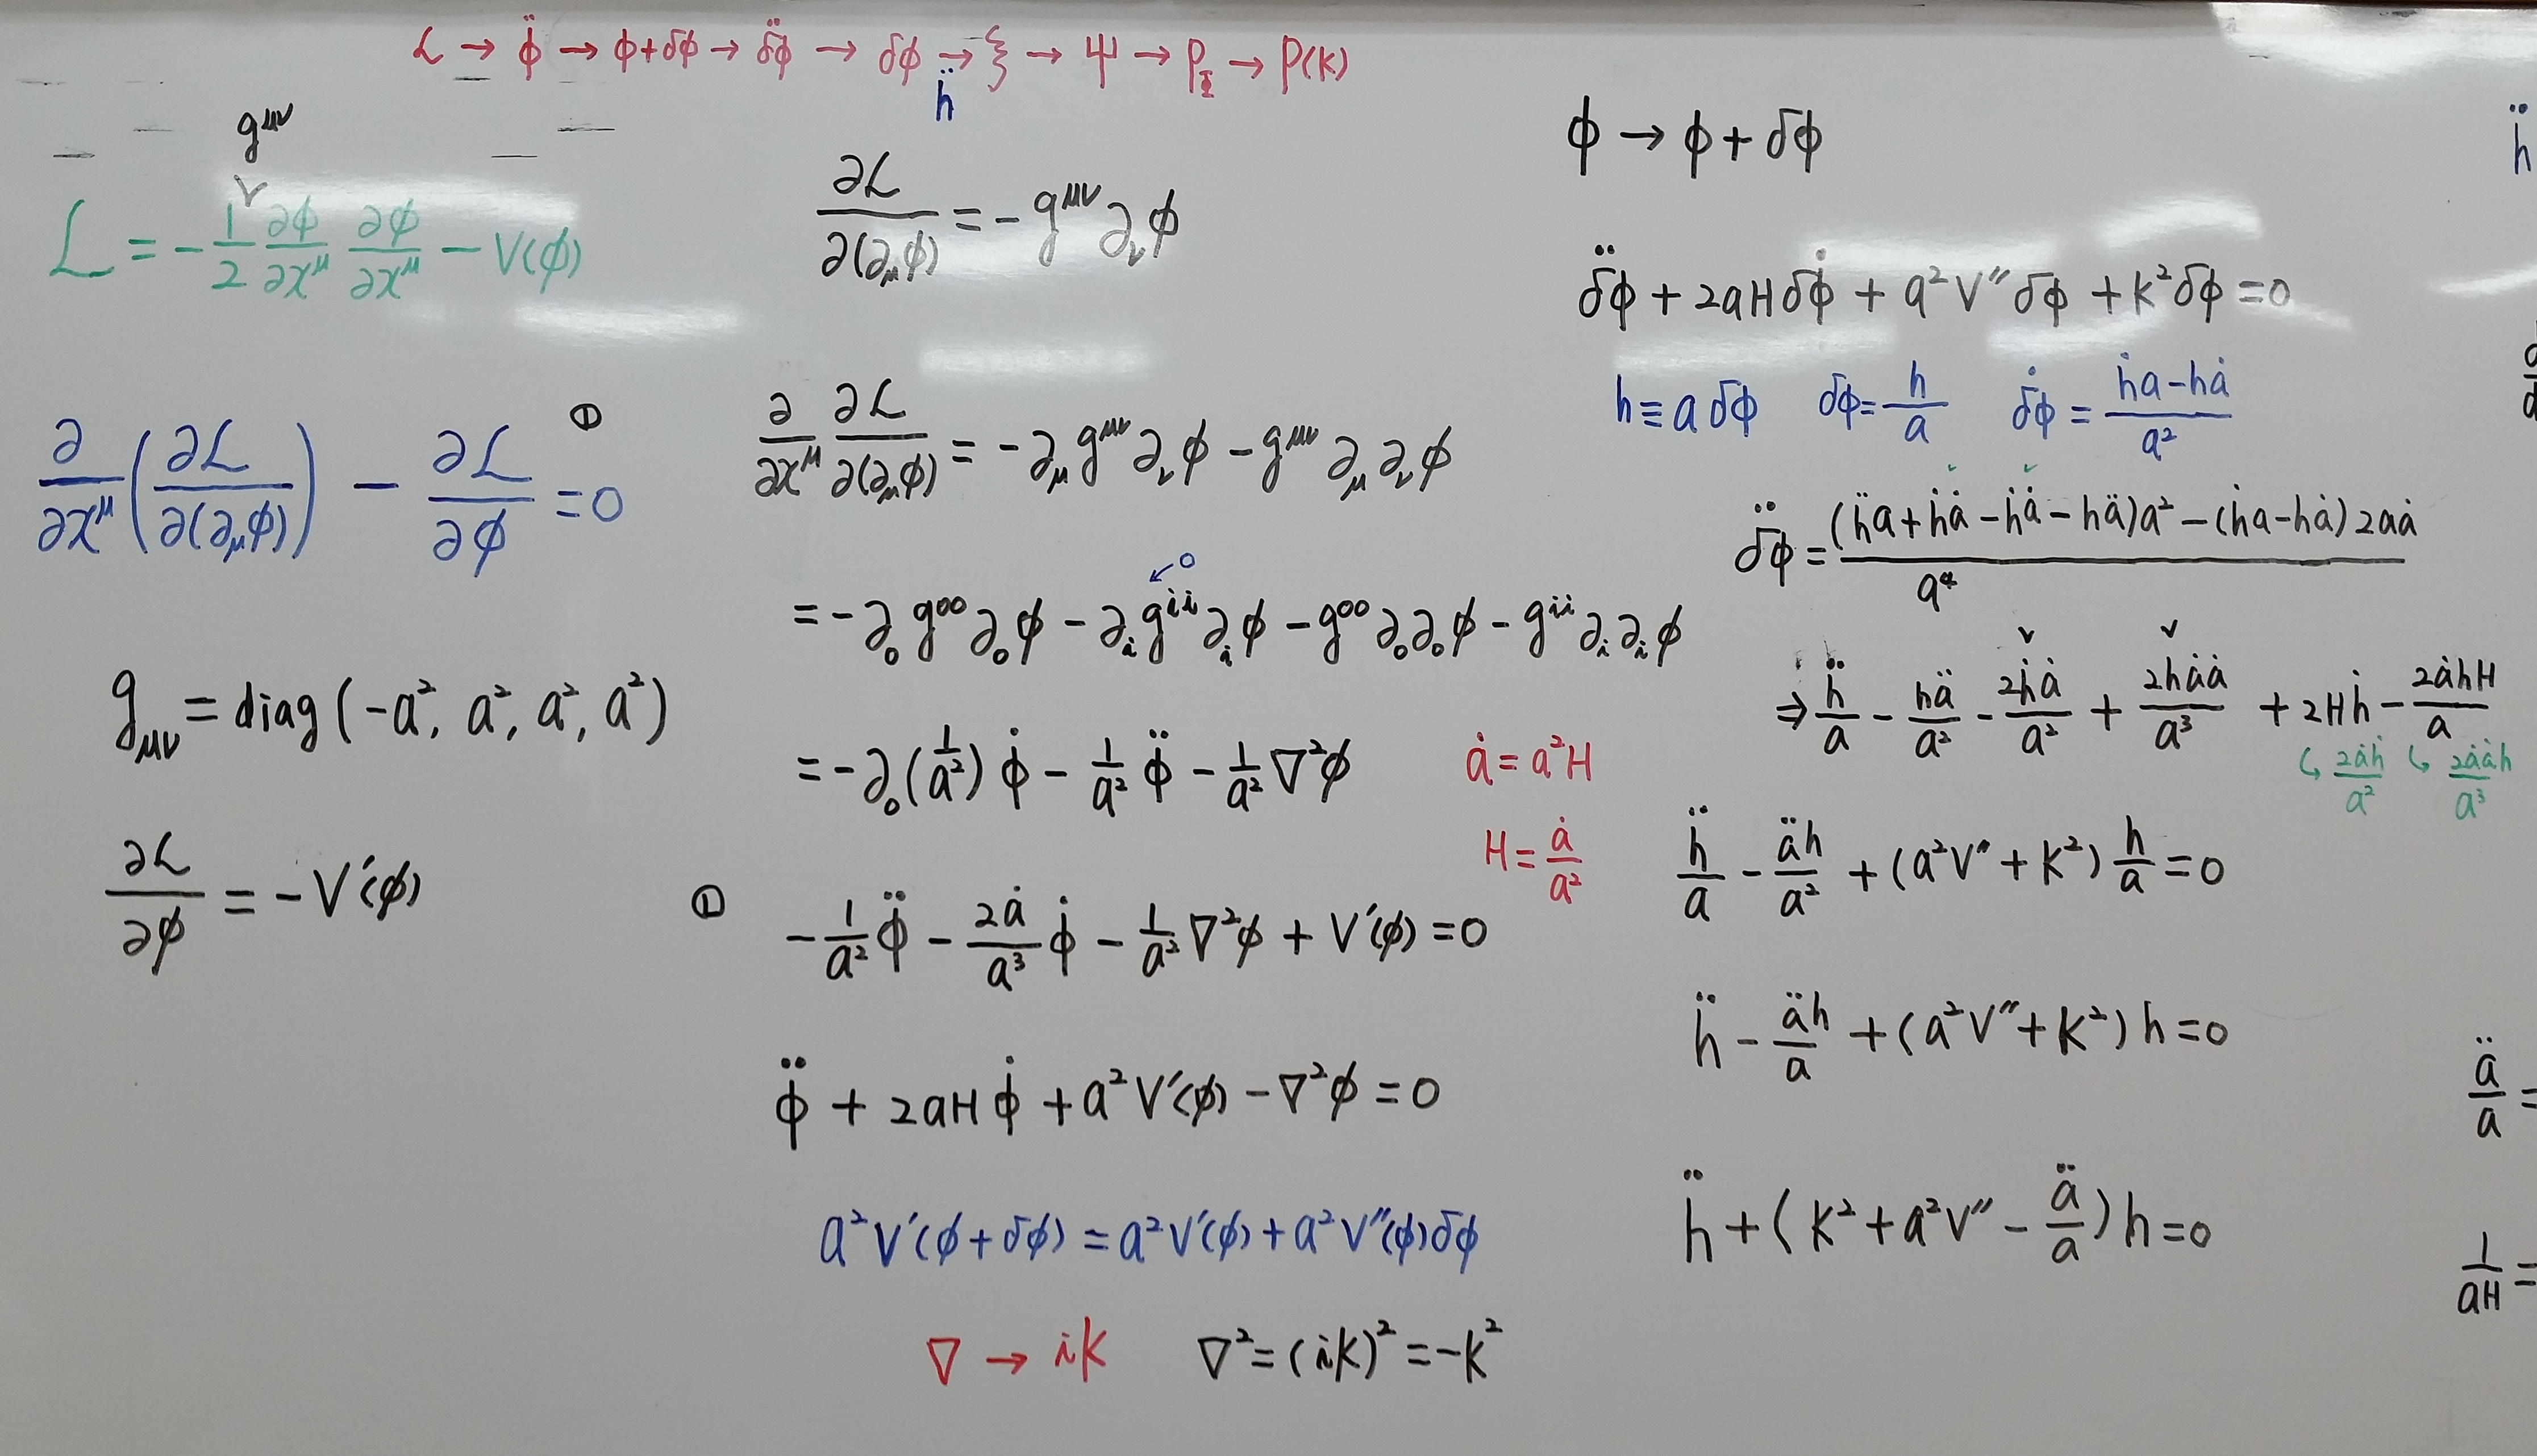 ℒ → φ̈ → φ+δφ → δφ̈ → δφ → ξ → ψ → P_Φ → P(k)
ḧ
g^{μν}
ℒ = -1/2 ∂φ/∂x^μ ∂φ/∂x^μ - V(φ)
∂/∂x^μ (∂ℒ/∂(∂_μφ)) - ∂ℒ/∂φ = 0 ①
g_{μν} = diag(-a², a², a², a²)
∂ℒ/∂φ = -V′(φ)
∂ℒ/∂(∂_μφ) = -g^{μν} ∂_νφ
∂/∂x^μ ∂ℒ/∂(∂_μφ) = -∂_μ g^{μν} ∂_νφ - g^{μν} ∂_μ ∂_νφ
↙ 0
= -∂_0 g^{00} ∂_0φ - ∂_i g^{ii} ∂_iφ - g^{00} ∂_0∂_0φ - g^{ii} ∂_i∂_iφ
= -∂_0(1/a²) φ̇ - 1/a² φ̈ - 1/a² ∇²φ
ȧ = a²H
H = ȧ/a²
① -1/a² φ̈ - 2ȧ/a³ φ̇ - 1/a² ∇²φ + V′(φ) = 0
φ̈ + 2aHφ̇ + a²V′(φ) - ∇²φ = 0
a²V′(φ+δφ) = a²V′(φ) + a²V″(φ)δφ
∇ → ik ∇² = (ik)² = -k²
φ → φ + δφ
δφ̈ + 2aHδφ̇ + a²V″δφ + k²δφ = 0
h ≡ aδφ δφ = h/a δφ̇ = (ḣa-hȧ)/a²
δφ̈ = ((ḧa+ḣȧ-ḣȧ-hä)a² - (ḣa-hȧ)2aȧ)/a⁴
⇒ ḧ/a - hä/a² - 2ḣȧ/a² + 2hȧȧ/a³ + 2Hḣ - 2ȧhH/a
↳ 2ȧḣ/a² ↳ 2ȧȧh/a³
ḧ/a - äh/a² + (a²V″ + k²) h/a = 0
ḧ - äh/a + (a²V″ + k²)h = 0
ḧ + (k² + a²V″ - ä/a)h = 0
ḧ
ä/a =
1/aH =